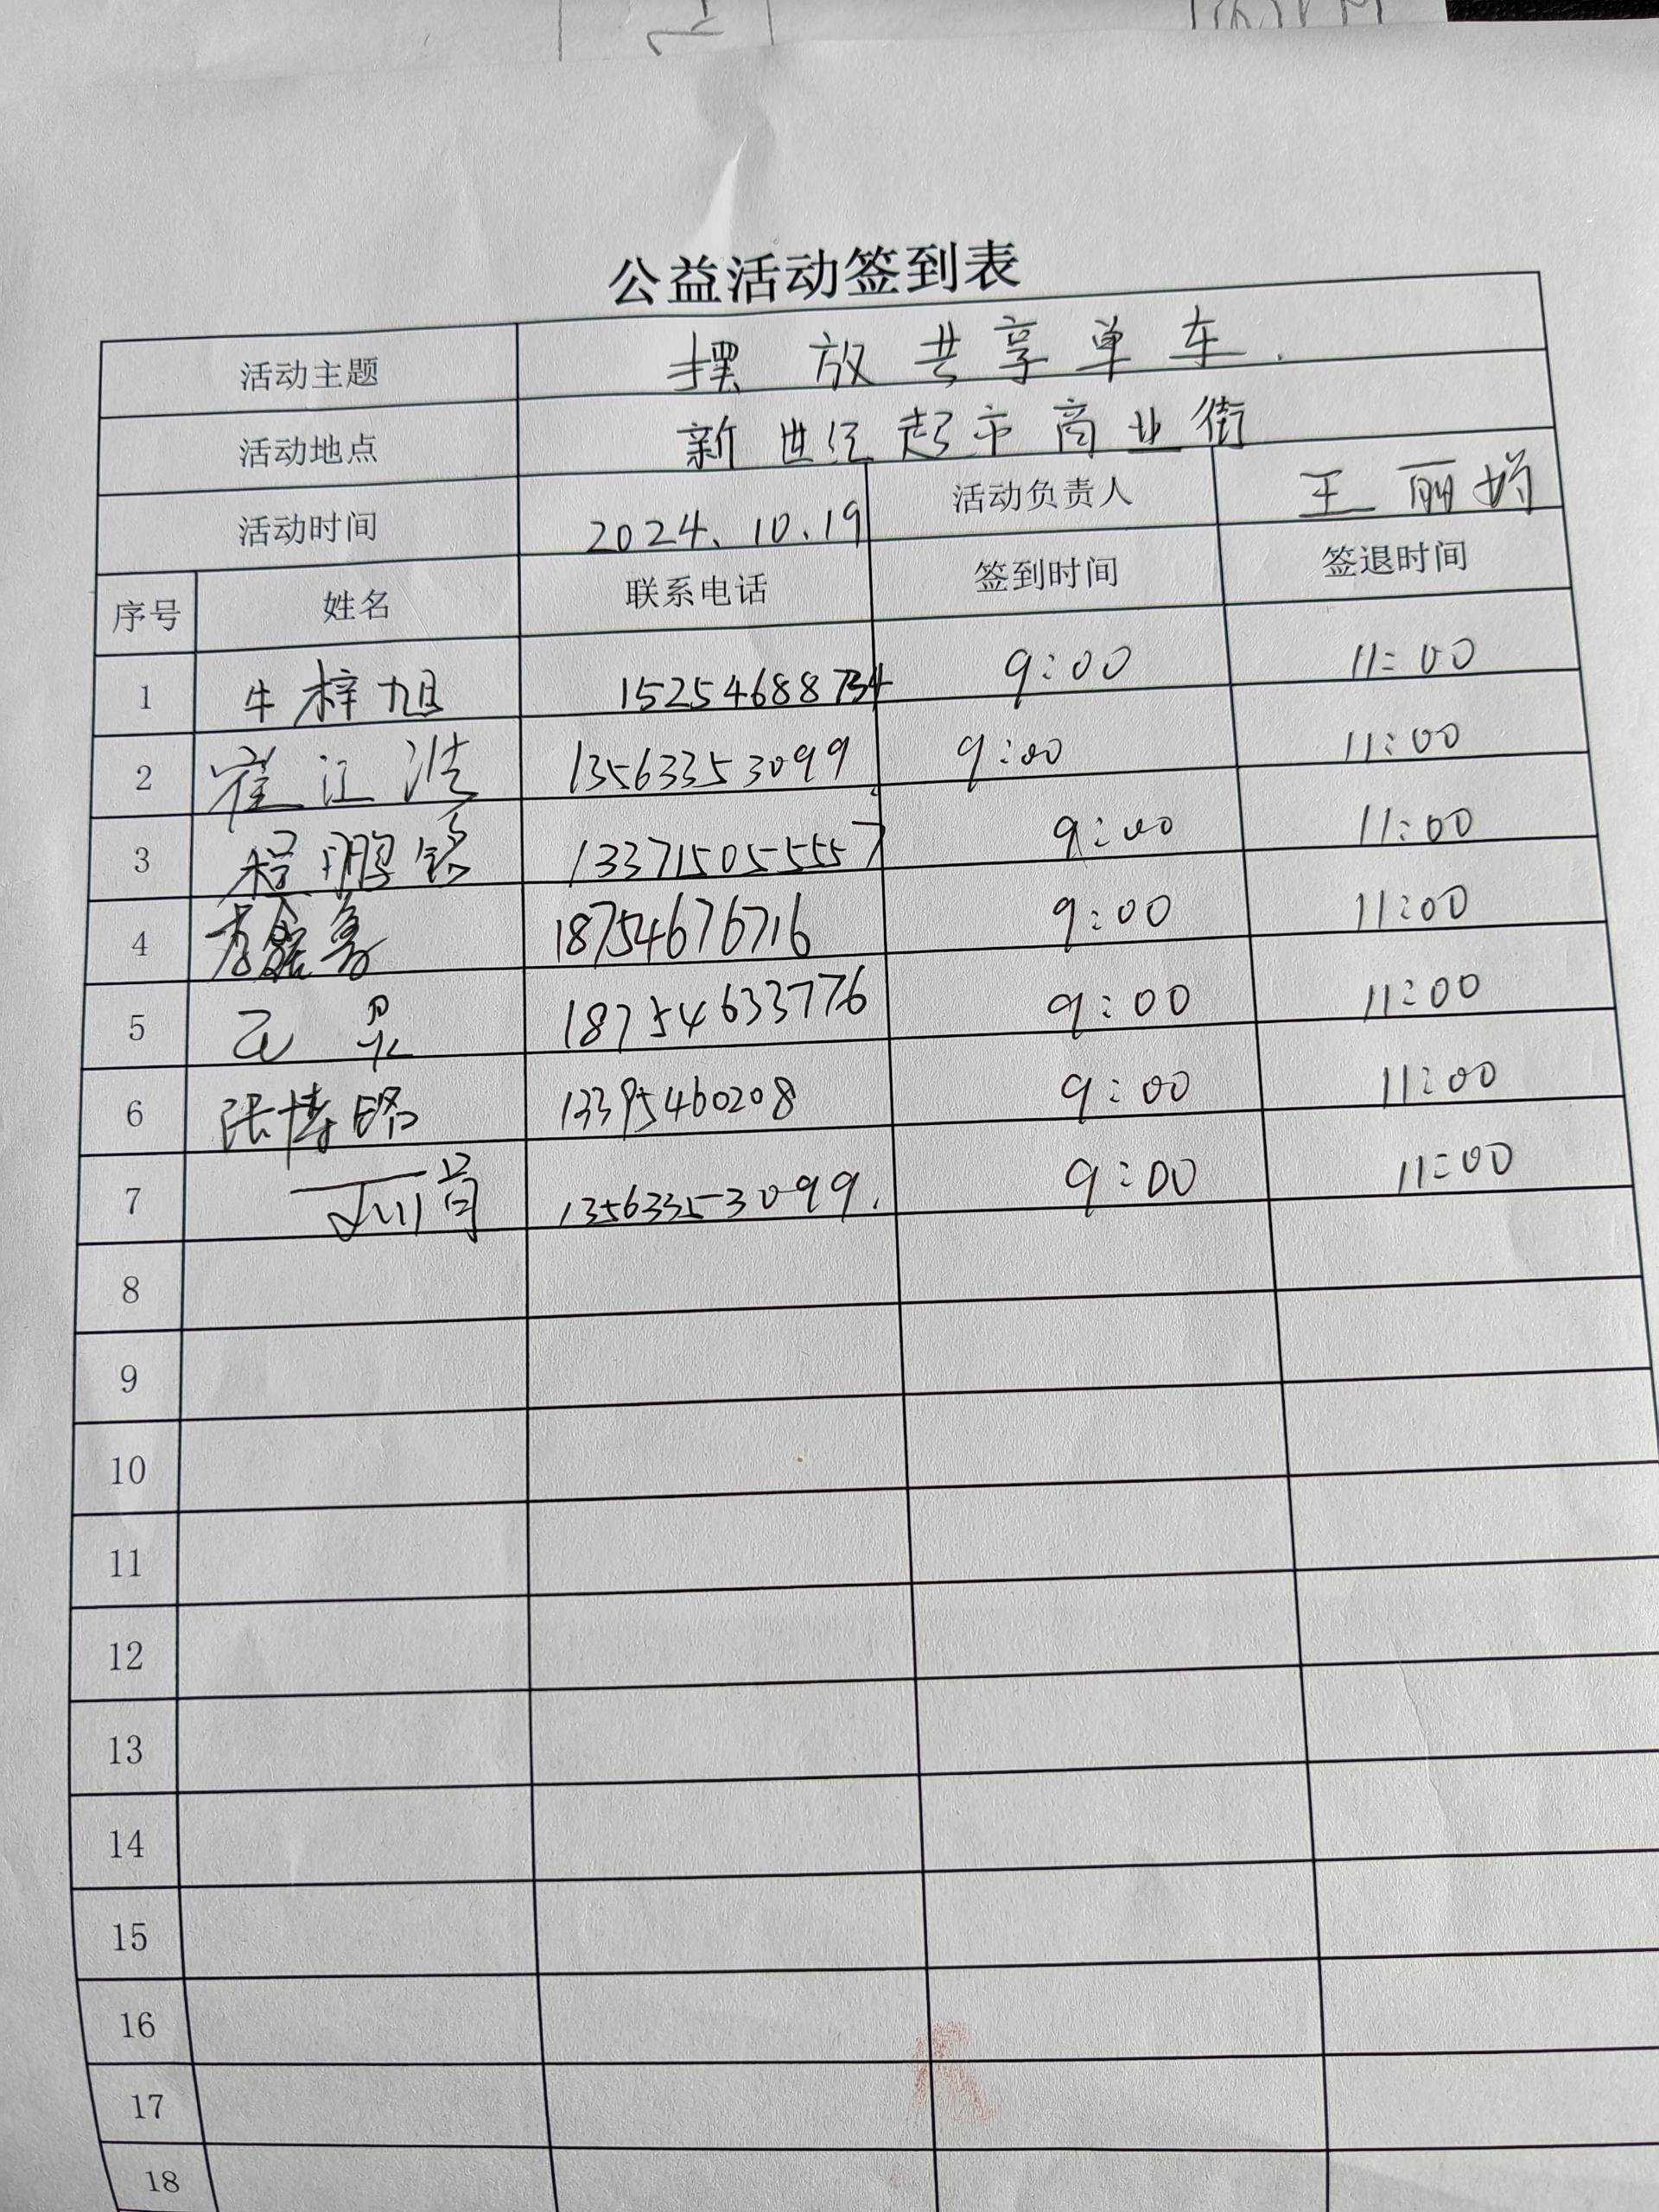 公益活动签到表
活动主题 摆放共享单车.
活动地点 新世纪超市商业街
活动时间 2024.10.19 活动负责人 王丽娟
序号 姓名 联系电话 签到时间 签退时间
1 牛梓旭 15254688734 9:00 11:00
2 崔江浩 13563353099 9:00 11:00
3 程鹏铭 13371505557 9:00 11:00
4 18754676716 9:00 11:00
5 18754633776 9:00 11:00
6 张博 13395460208 9:00 11:00
7 13563353099. 9:00 11:00
8
9
10
11
12
13
14
15
16
17
18